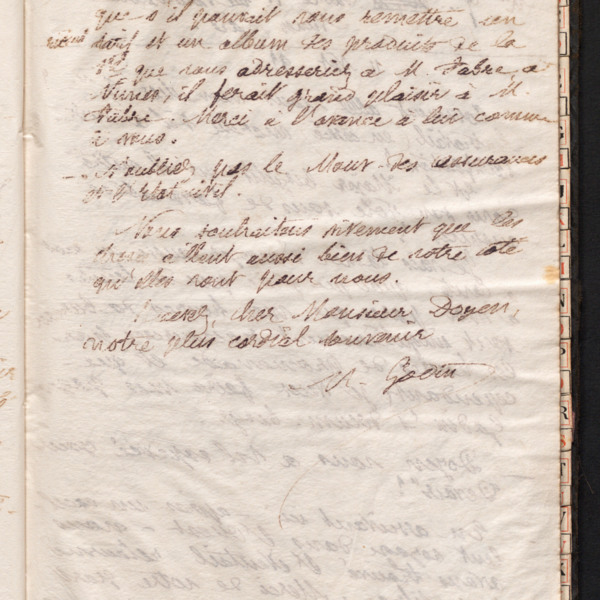 que s'il pouvait vous remettre un
tarif et un album des produits de la
Sté que vous adresseriez à M. Fabre, à
Nîmes, il ferait grand plaisir à M.
Fabre. Merci à l'avance à lui comme
à vous.
— N'oubliez pas le Mouv. des assurances
et l'Etat civil.
Nous souhaitons vivement que les
choses aillent aussi bien de votre côté
qu'elles vont pour nous.
cher Monsieur Doyen,
notre plus cordial souvenir
Godin